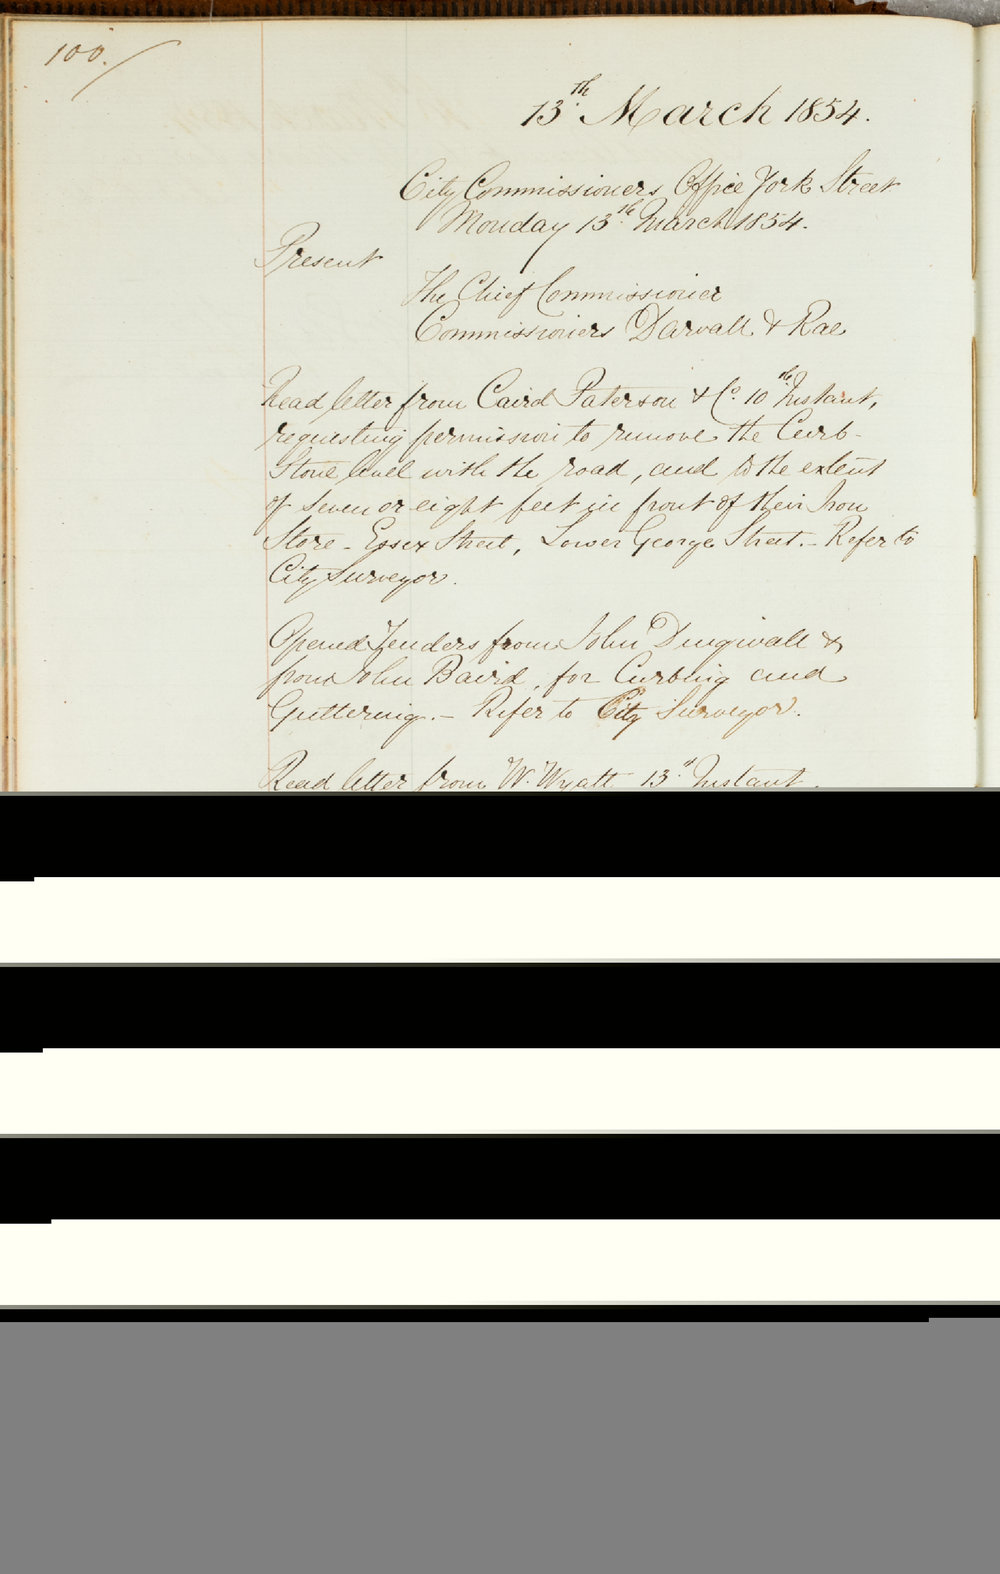 100.
13th March 1854.
City Commissioners Office York Street
Monday 13th March 1854.
Present
The Chief Commissioner
Commissioners Darvall & Rae
Read letter from Caird Paterson & Co. 10th Instant,
requesting permission to remove the Curb-
Stone level with the road, and to the extent
of seven or eight feet in front of their Iron
Store - Essex Street, Lower George Street. - Refer to
City Surveyor.
Opened Tenders from John Dingwall &
from John Baird, for Curbing and
Guttering. - Refer to City Surveyor.
Read letter from W. Wyatt 13th Instant